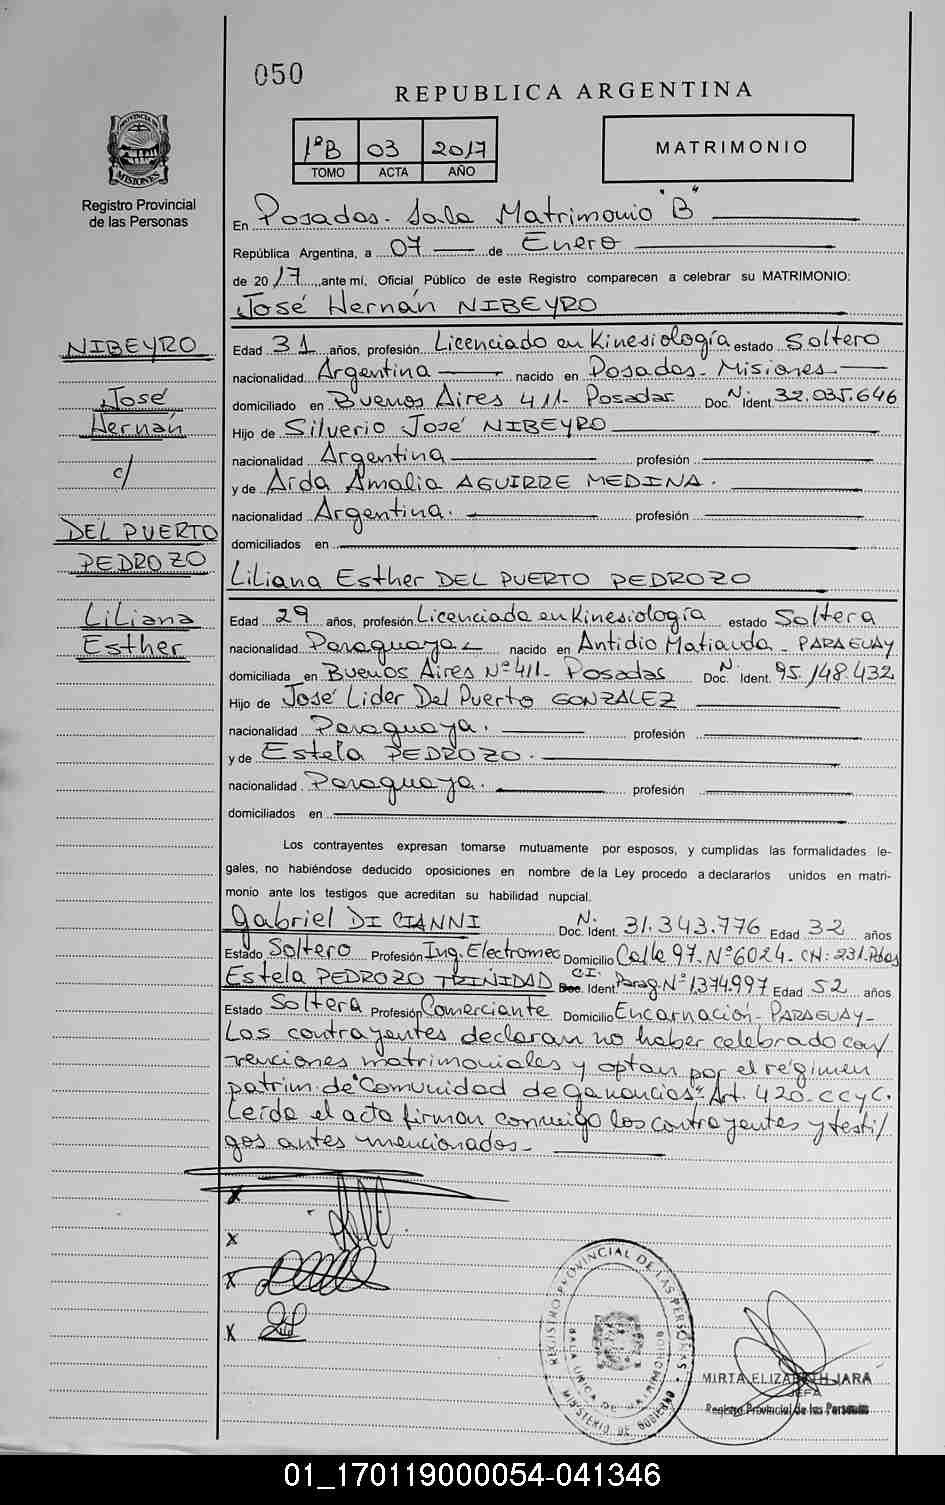 050
REPUBLICA ARGENTINA
1ºB 03 2017
TOMO ACTA AÑO
MATRIMONIO
PROVINCIA DE MISIONES
Registro Provincial
de las Personas
En Posadas. Sala Matrimonio "B"
República Argentina, a 07 de Enero
de 2017, ante mí, Oficial Público de este Registro comparecen a celebrar su MATRIMONIO:
José Hernán NIBEYRO
NIBEYRO
José
Hernán
c/
DEL PUERTO
PEDROZO
Liliana
Esther
Edad 31 años, profesión Licenciado en Kinesiología estado Soltero
nacionalidad Argentina nacido en Posadas - Misiones
domiciliado en Buenos Aires 411- Posadas Doc. N. Ident. 32.035.646
Hijo de Silverio José NIBEYRO
nacionalidad Argentina profesión
y de Aida Amalia AGUIRRE MEDINA.
nacionalidad Argentina. profesión
domiciliados en
Liliana Esther DEL PUERTO PEDROZO
Edad 29 años, profesión Licenciada en Kinesiología estado Soltera
nacionalidad Paraguaya nacido en Antidio Matiauda - PARAGUAY
domiciliada en Buenos Aires Nº 411- Posadas Doc. N. Ident. 95.148.432
Hijo de José Lider Del Puerto GONZALEZ
nacionalidad Paraguaya. profesión
y de Estela PEDROZO.
nacionalidad Paraguaya. profesión
domiciliados en
Los contrayentes expresan tomarse mutuamente por esposos, y cumplidas las formalidades le-
gales, no habiéndose deducido oposiciones en nombre de la Ley procedo a declararlos unidos en matri-
monio ante los testigos que acreditan su habilidad nupcial.
Gabriel DI CIANNI Doc. N. Ident. 31.343.776 Edad 32 años
Estado Soltero Profesión Ing. Electromec Domicilio Calle 97. Nº 6024 - CH: 231. Pdas
Estela PEDROZO TRINIDAD Doc. C.I. Ident. Parag. Nº 1.374.997 Edad 52 años
Estado Soltera Profesión Comerciante Domicilio Encarnación - PARAGUAY -
Los contrayentes declaran no haber celebrado con/
venciones matrimoniales y optan por el régimen
patrim. de "Comunidad de ganancias" Art. 420 - CCyC.
Leída el acta firman conmigo los contrayentes y testi/
gos antes mencionados.
x
x
x
x
REGISTRO PROVINCIAL DE LAS PERSONAS
MINISTERIO DE GOBIERNO
MIRTA ELIZABETH JARA
JEFA
Registro Provincial de las Personas
01_170119000054-041346